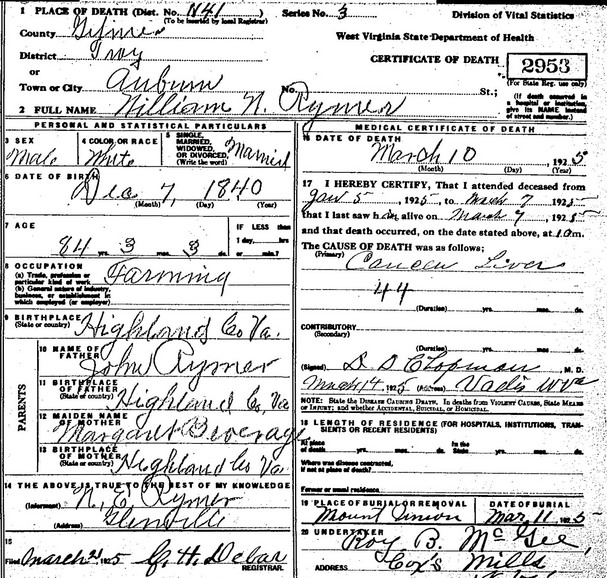 1 PLACE OF DEATH (Dist. No. 1141
(To be inserted by local Registrar)
Series No. 3
Division of Vital Statistics
County Gilmer
West Virginia State Department of Health
District Troy
CERTIFICATE OF DEATH
2953
(For State Reg. use only)
or
Town or City Auburn
No. St.;
(If death occurred in a hospital or institution, give its NAME instead of street and number.)
2 FULL NAME William N. Rymer
PERSONAL AND STATISTICAL PARTICULARS
3 SEX
Male
4 COLOR OR RACE
White
5 SINGLE, MARRIED, WIDOWED, OR DIVORCED, (Write the word)
Married
6 DATE OF BIRTH
Dec 7, 1840
(Month) (Day) (Year)
7 AGE
84 yrs. 3 mos. 3 ds.
IF LESS than
1 day, hrs
or min.?
8 OCCUPATION
(a) Trade, profession or particular kind of work
(b) General nature of industry, business, or establishment in which employed (or employer)
Farming
9 BIRTHPLACE
(State or country)
Highland Co Va.
PARENTS
10 NAME OF FATHER
John Rymer
11 BIRTHPLACE OF FATHER
(State or country)
Highland Co, Va
12 MAIDEN NAME OF MOTHER
Margaret Beverage
13 BIRTHPLACE OF MOTHER
(State or country)
Highland Co Va
14 THE ABOVE IS TRUE TO THE BEST OF MY KNOWLEDGE
(Informant) N. E. Rymer
(Address) Glenville
15
Filed March 21 1925 G. H. Debar
REGISTRAR.
MEDICAL CERTIFICATE OF DEATH
16 DATE OF DEATH
March 10 1925
(Month) (Day) (Year)
17 I HEREBY CERTIFY, That I attended deceased from
Jan 5 1925, to March 7 1925
that I last saw him alive on March 7 1925
and that death occurred, on the date stated above, at 10 m.
The CAUSE OF DEATH was as follows;
(Primary)
Cancer Liver
44
(Duration) yrs. mos. ds.
CONTRIBUTORY
(Secondary)
(Duration) yrs. mos. ds.
(Signed) D D Chapman, M. D.
March 14, 1925 (Address) Vadis W Va
NOTE: State the DISEASE CAUSING DEATH. In deaths from VIOLENT CAUSES, STATE MEANS OF INJURY; and whether ACCIDENTAL, SUICIDAL, OR HOMICIDAL.
18 LENGTH OF RESIDENCE (FOR HOSPITALS, INSTITUTIONS, TRANSIENTS OR RECENT RESIDENTS)
At place of death yrs. mos. ds.
In the State yrs. mos. ds.
Where was disease contracted, if not at place of death?
Former or usual residence
19 PLACE OF BURIAL OR REMOVAL
Mount Union
DATE OF BURIAL
Mar. 11 1925
20 UNDERTAKER
Roy B. McGee,
ADDRESS Cox's Mills,